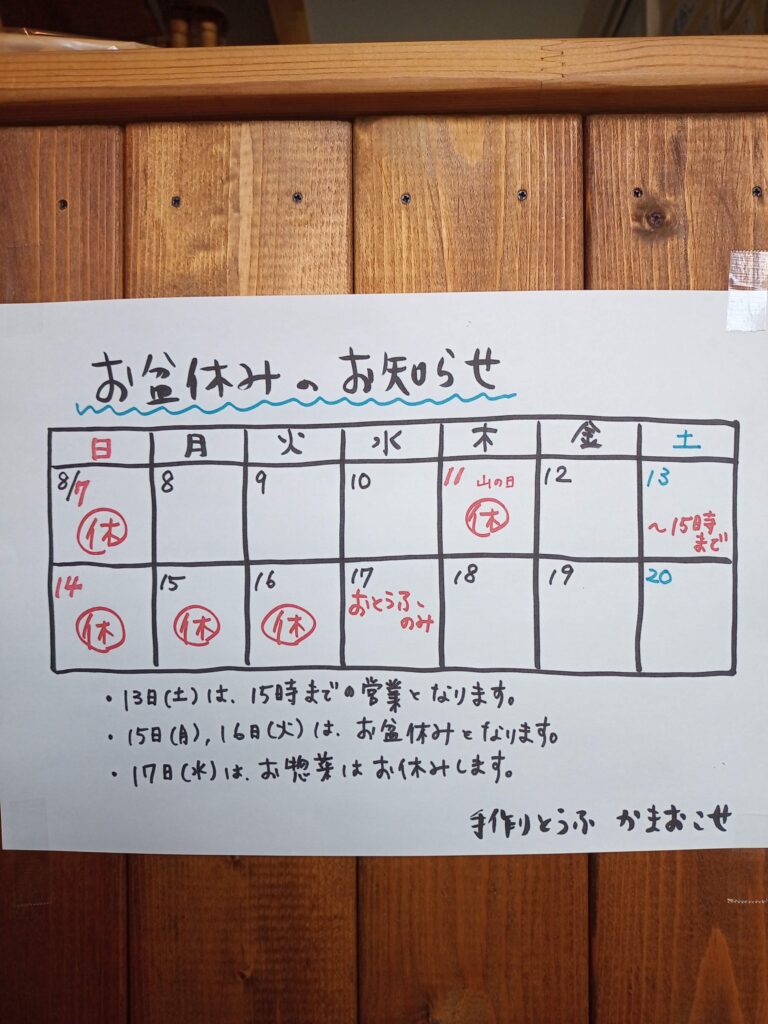 お盆休みのお知らせ
日 月 火 水 木 金 土
8/7 8 9 10 11 山の日 12 13
休 休 ～15時
まで
14 15 16 17 18 19 20
休 休 休 おとうふ
のみ
・13日(土)は、15時までの営業となります。
・15日(月),16日(火)は、お盆休みとなります。
・17日(水)は、お惣菜はお休みします。
手作りとうふ かまおこせ